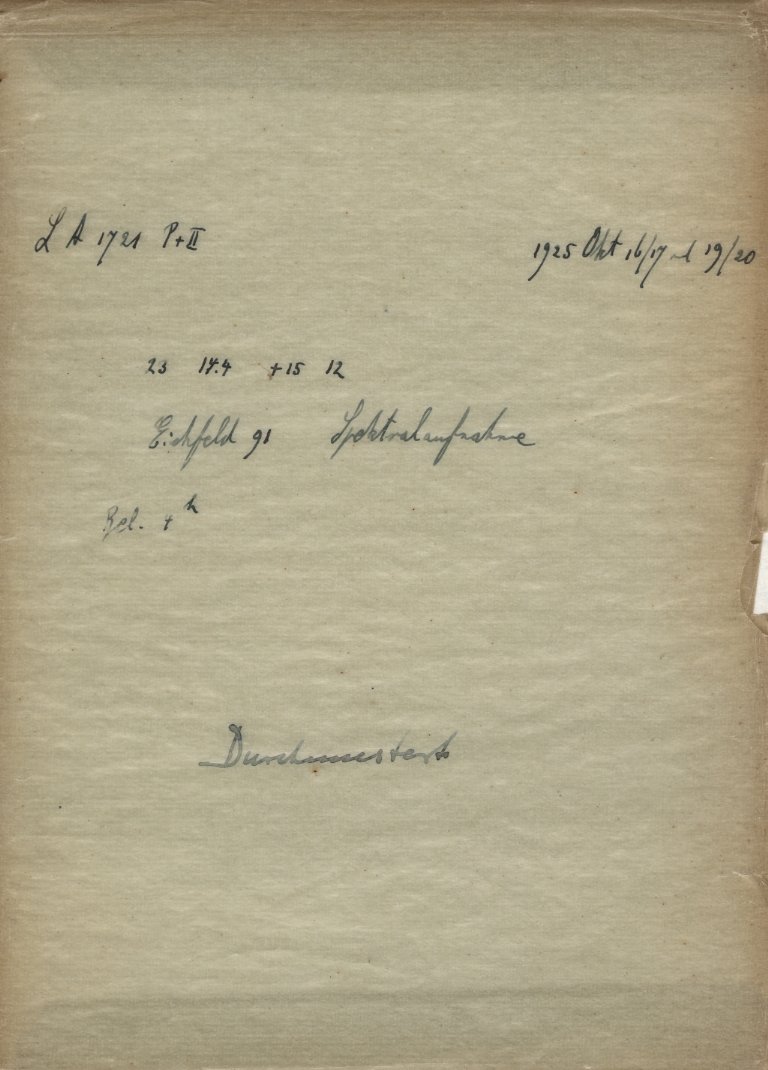 L A 1721 P+II 1925 Okt 16/17 und 19/20
23 17.4 +15 12
Eichfeld 91 Spektralaufnahme
Bel. 4h
Durchmustert